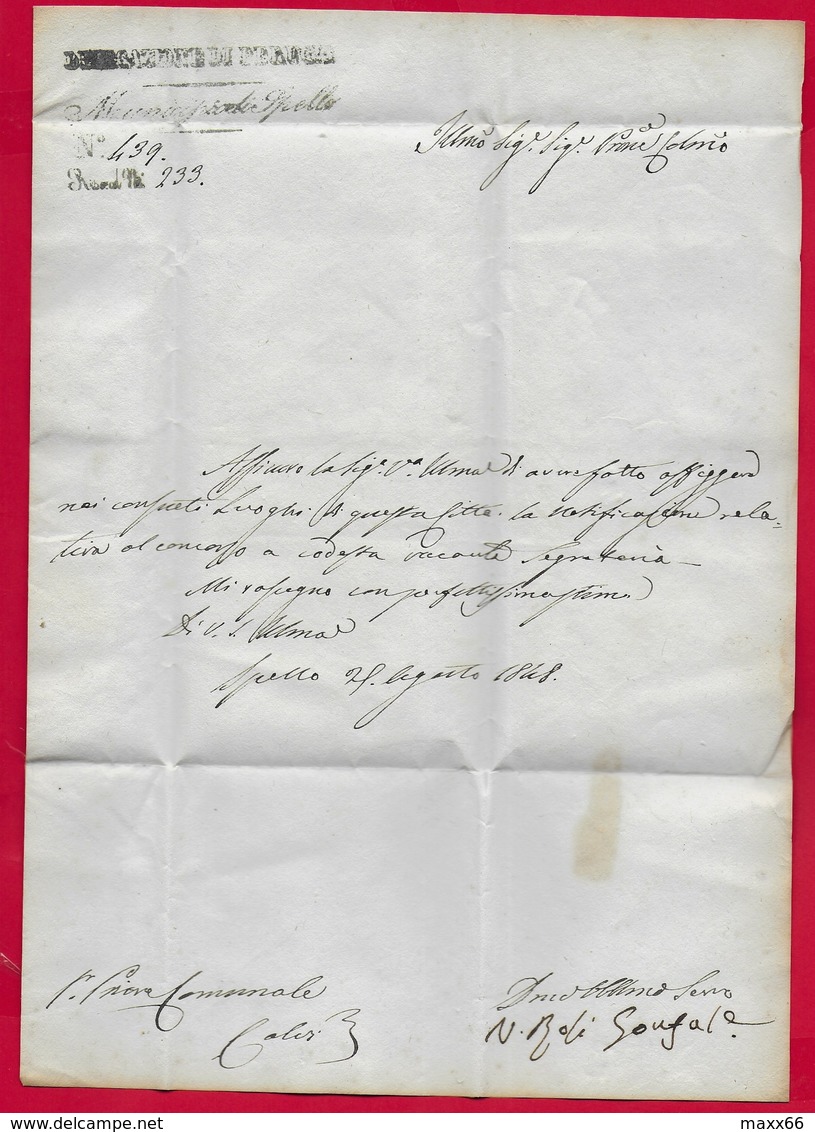 DELEGAZIONE DI PERUGIA
Municipio di Spello
N.° 439.
Risp. al N.° 233.
Illmo Sigr. Sigr. Prone Colmo
Assicuro la Sigа Va Illma di avere fatto affiggere
nei consueti Luoghi di questa Città la Notificazione rela=
tiva al concorso a codesta vacante Segreteria
Mi rassegno con perfettissima stima
Di V. S. Illma
Spello 25. Agosto 1848.
Sr. Priore Comunale
Calvi
Dmo Obblmo Servo
N. Rosi
delcampe.net
maxx66